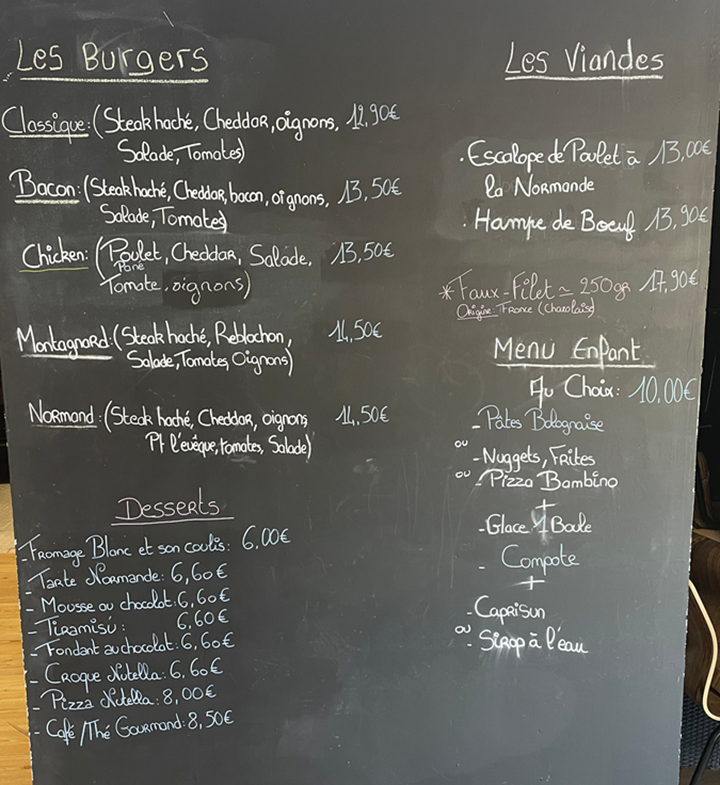 Les Burgers
Classique: (Steak haché, Cheddar, oignons, 12,90€
Salade, Tomates)
Bacon: (Steak haché, Cheddar, bacon, oignons, 13,50€
Salade, Tomates)
Chicken: (Poulet, Cheddar, Salade, 13,50€
Pané
Tomate, oignons)
Montagnard: (Steak haché, Reblochon, 14,50€
Salade, Tomates, Oignons)
Normand: (Steak haché, Cheddar, oignons 14,50€
Pt l'evêque, tomates, Salade)
Desserts
- Fromage Blanc et son coulis: 6,00€
- Tarte Normande: 6,60€
- Mousse au chocolat: 6,60€
- Tiramisú: 6,60€
- Fondant au chocolat: 6,60€
- Croque Nutella: 6,60€
- Pizza Nutella: 8,00€
- Café/Thé Gourmand: 8,50€
Les Viandes
. Escalope de Poulet à 13,00€
la Normande
. Hampe de Boeuf 13,90€
* Faux-Filet ≃ 250gr 17,90€
Origine: France (Charolaise)
Menu Enfant
Au Choix: 10,00€
- Pâtes Bolognaise
ou - Nuggets, Frites
ou - Pizza Bambino
+
- Glace 1 Boule
- Compote
+
- Caprisun
ou - Sirop à l'eau